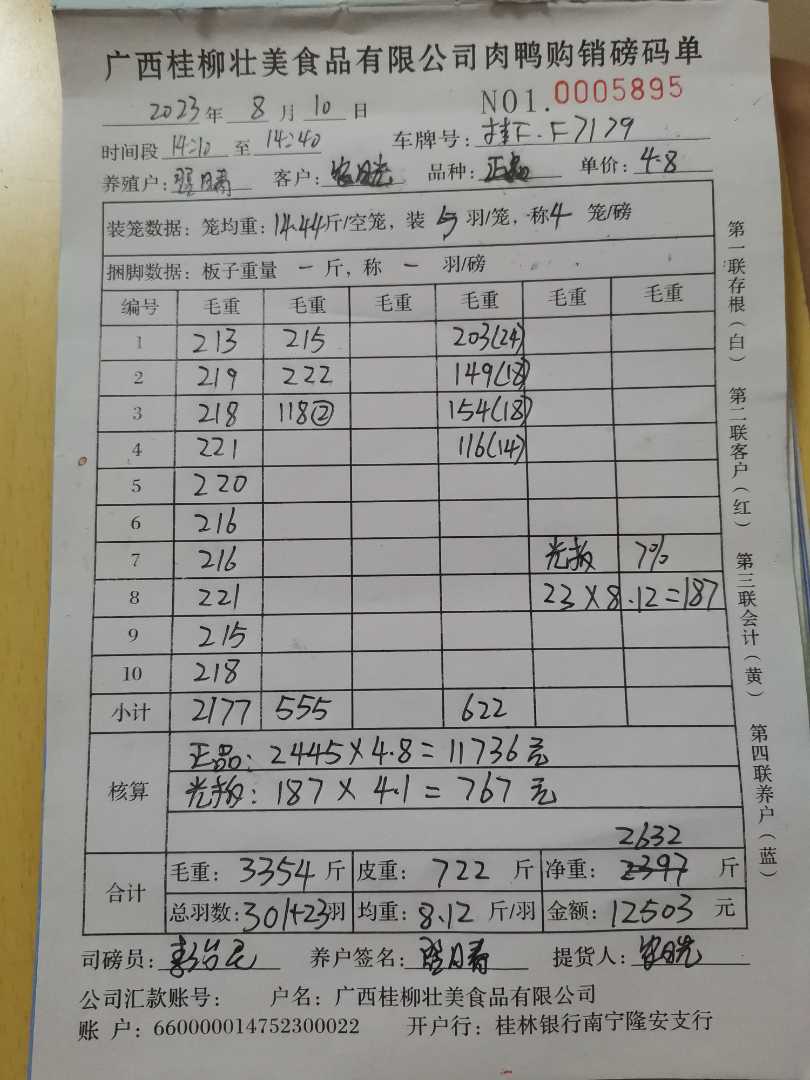 广西桂柳壮美食品有限公司肉鸭购销磅码单
2023年 8 月 10 日 NO1.0005895
时间段 14:10 至 14:40 车牌号: 桂F·F7179
养殖户: 客户: 品种: 正品 单价: 4.8
装笼数据: 笼均重: 14.44斤/空笼, 装 5 羽/笼, 称 4 笼/磅
捆脚数据: 板子重量 一 斤, 称 一 羽/磅
编号 毛重 毛重 毛重 毛重 毛重 毛重
1 213 215 203(24)
2 219 222 149(18)
3 218 118② 154(18)
4 221 116(14)
5 220
6 216
7 216 光板 7%
8 221 23×8.12=187
9 215
10 218
小计 2177 555 622
核算
正品: 2445×4.8=11736元
光板: 187×4.1=767元
2632
合计
毛重: 3354 斤 皮重: 722 斤 净重: 2397 斤
总羽数: 301+23羽 均重: 8.12 斤/羽 金额: 12503 元
司磅员: 养户签名: 提货人:
公司汇款账号: 户名: 广西桂柳壮美食品有限公司
账 户: 660000014752300022 开户行: 桂林银行南宁隆安支行
第一联存根(白) 第二联客户(红) 第三联会计(黄) 第四联养户(蓝)